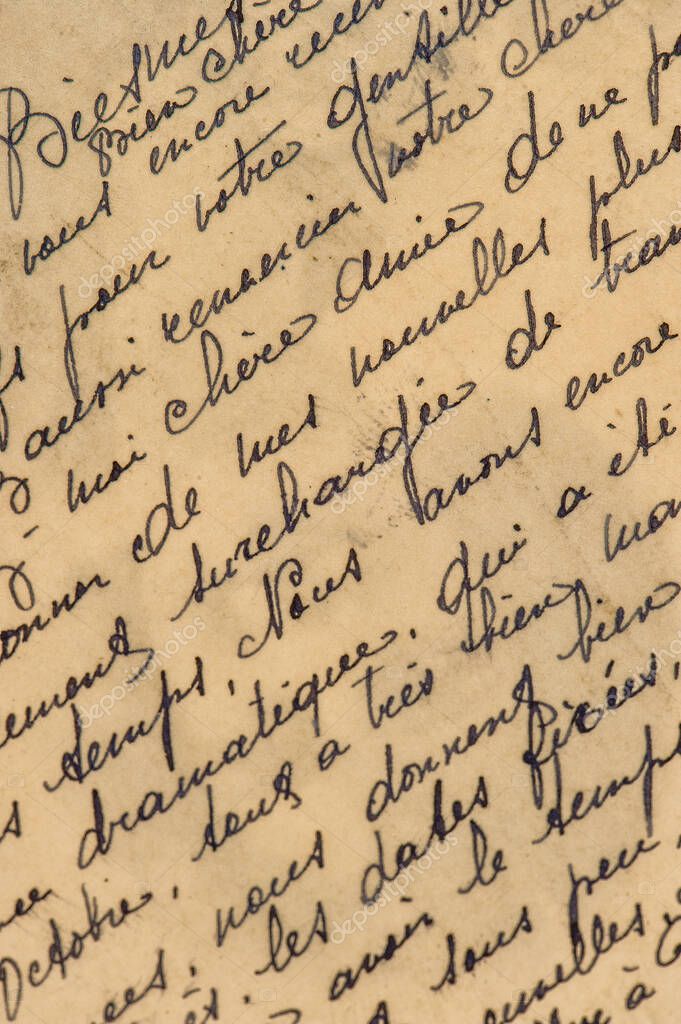 Biesmes
Bien chère
vous encore
pour votre gentille
aussi remercier votre chère
moi chère amie de ne pa
onner de mes nouvelles plus
ement surchargée de trav
temps, Nous avons encore
dramatique. Qui a été
Octobre, tout a très bien mar
nous donnent bien
les dates fixées,
avoir le temps
sous peu,
nouvelles,
à
depositphotos
depositphotos
depositphotos
depositphotos
depositphotos
depositphotos